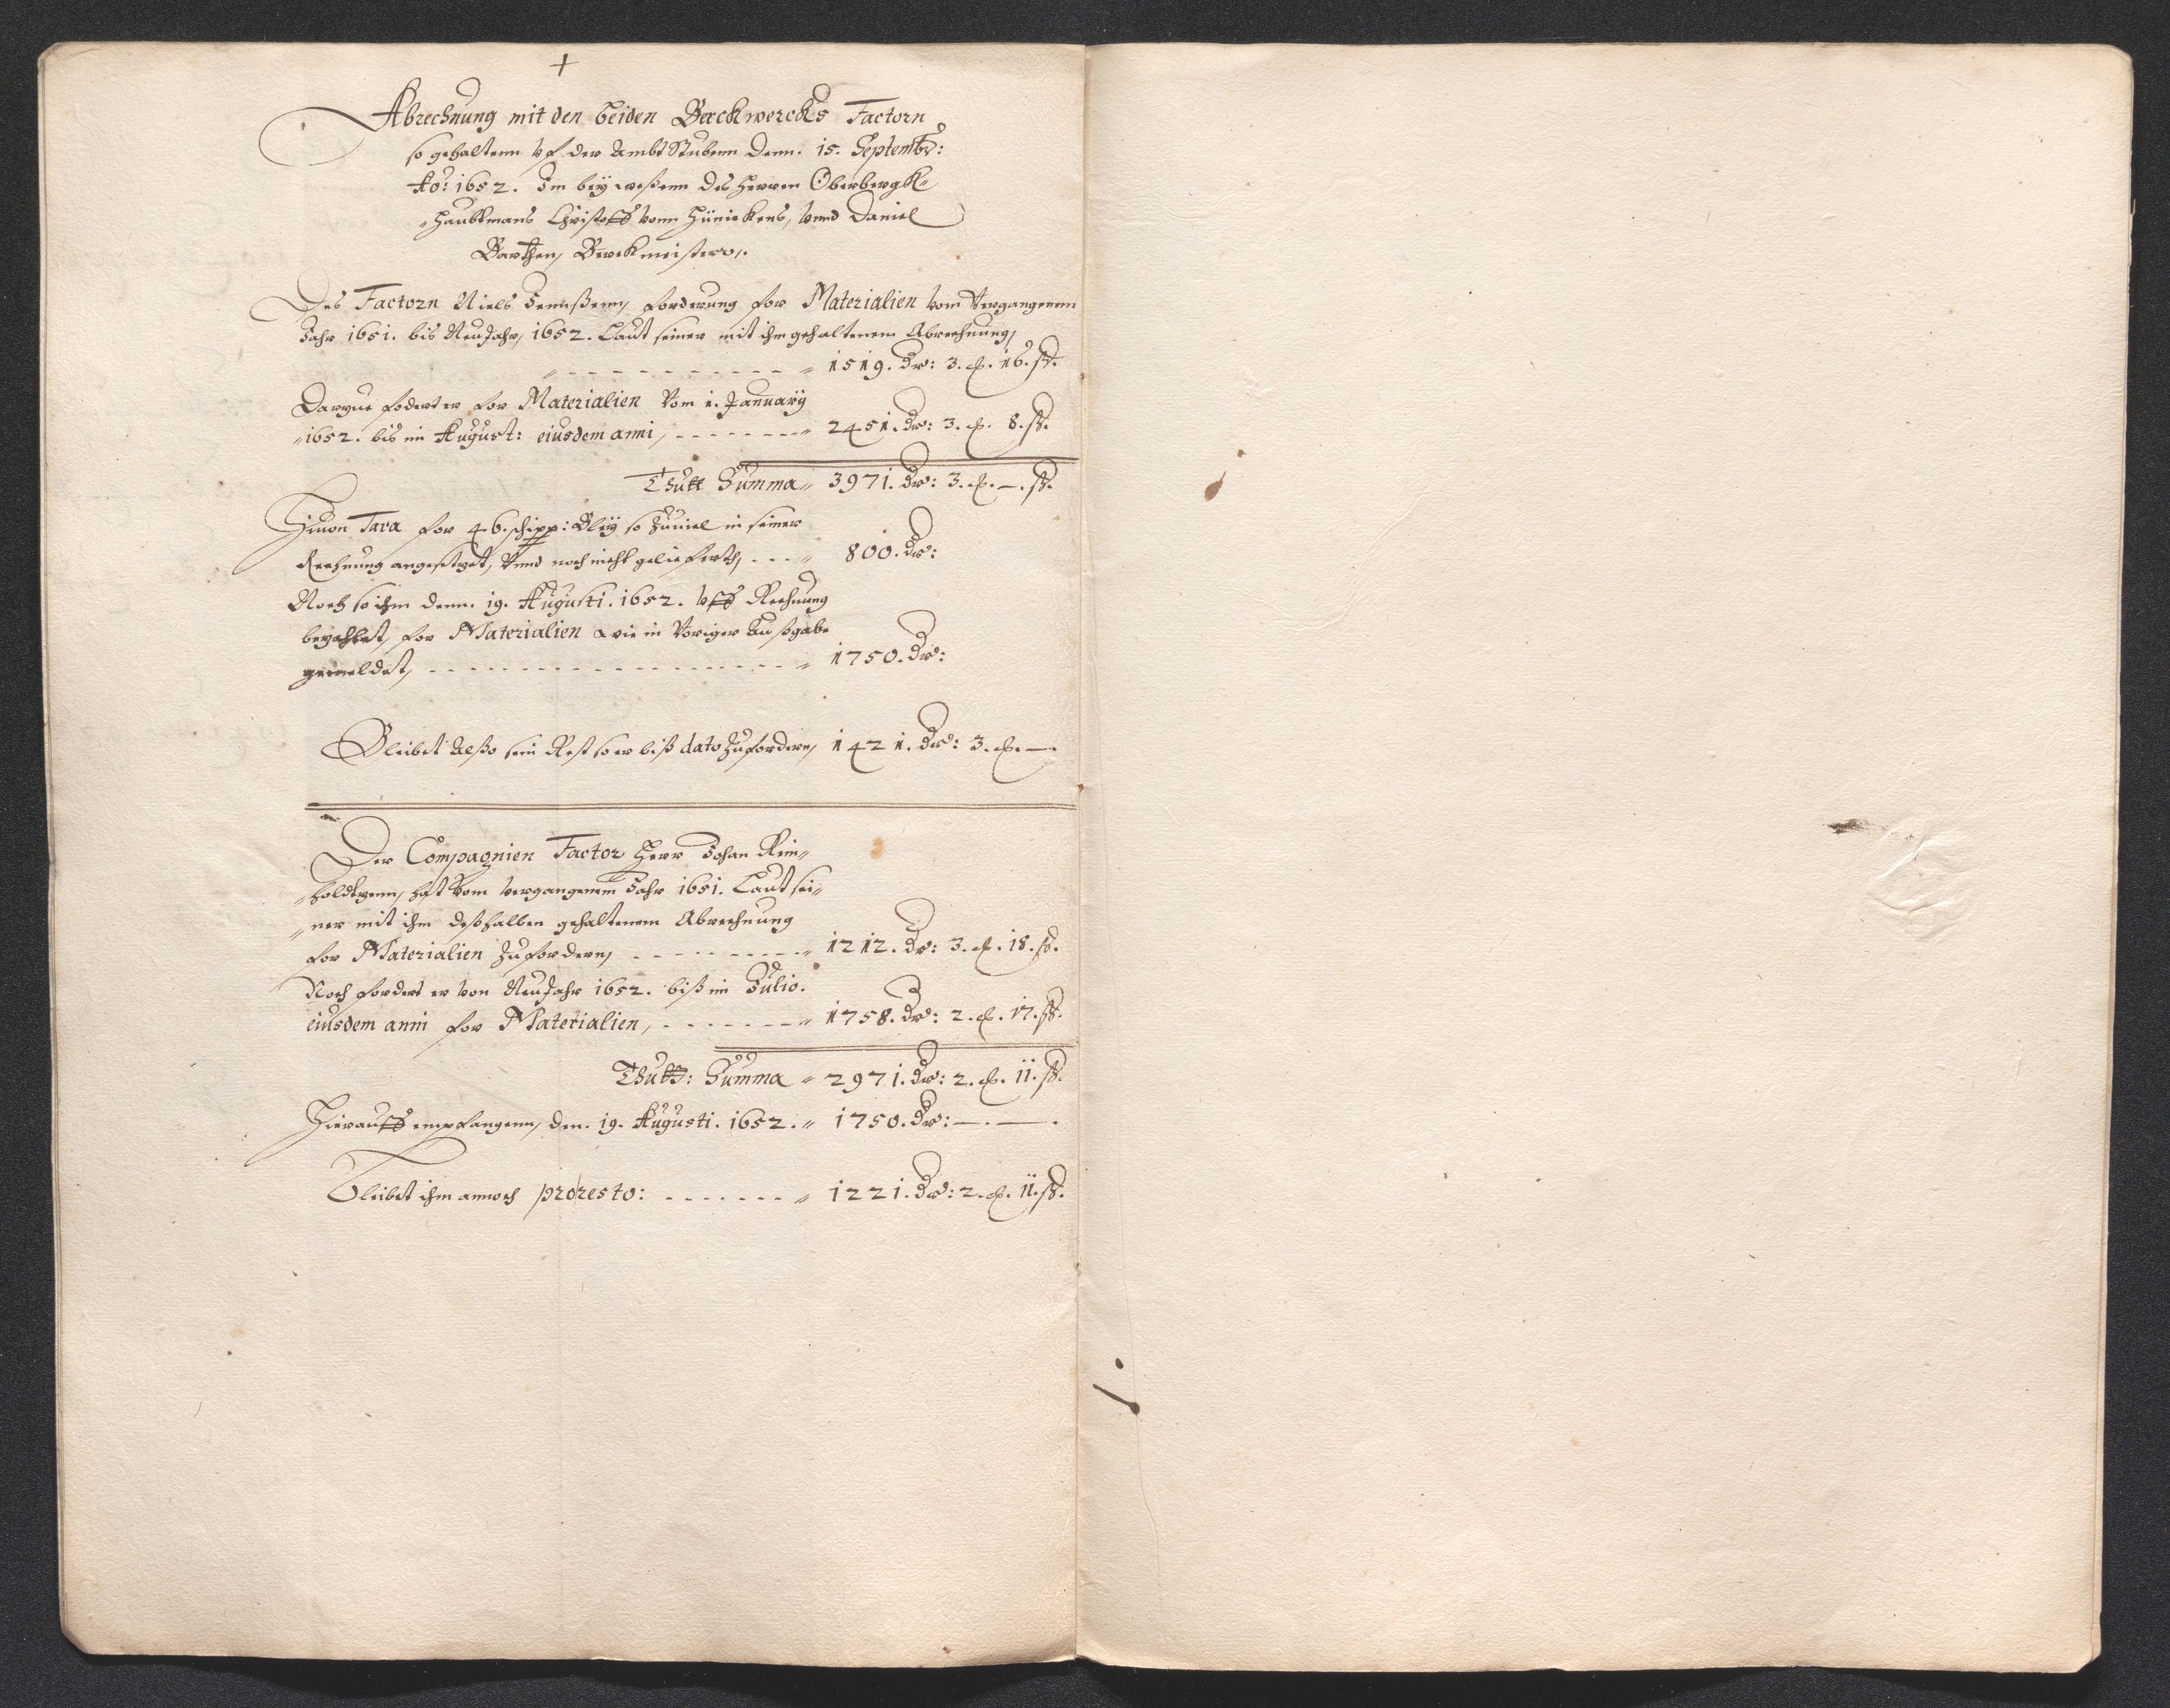 +
Abrechnung mit den beiden Berckwercks Factorn
so gehaltenn vf der Ambt Stubenn denn. 15. Septembr:
Ao: 1652. Im bey weßenn des Herren Oberbergk„
„Haubtmans Christoff vonn Hünickens, vnnd Daniel
Barthen, Berckmeistern,.
Des Factorn Niels Jennßenn, forderung for Materialien vom vergangenem
Jahr 1651. bis Neu Jahr, 1652. Laut seiner mit ihm gehaltenem Abrechnung,
„ - - - - - - - - - - - „ 1519. Dr: 3. 16. ß.
Darzue fodert er for Materialien vom 1. January
„1652. bis im August: eiusdem anni, - - - - - - - - „ 2451. Dr: 3. 8. ß.
Thutt Summa „ 3971. Dr: 3. —. ß.
Hiuon Tara for 46. schipp: Bley so zuuiel in seiner
Rechnung angesetzet, vnnd noch nicht gelieferth, - - - „ 800. Dr:
Noch so ihm denn. 19. Augusti. 1652. vff Rechnung
bezahlet, for Materialien wie in voriger Außgabe
gemeldet, - - - - - - - - - - - - - - - - - - „ 1750. Dr:
Bleibet Alßo sein Rest so er biß dato zufordern, 1421. Dr: 3. —.
Der Compagnien Factor Herr Johan Rein„
„holdtzenn, hat vom vergangenem Jahr 1651. Laut sei„
„ner mit ihm deßhalben gehaltenem Abrechnung
for Materialien zufordern, - - - - - - - - - - „ 1212. Dr: 3. 18. ß.
Noch fordert er von Neu Jahr 1652. biß im Julio.
eiusdem anni for Materialien, - - - - - - - „ 1758. Dr: 2. 17. ß.
Thutt: Summa „ 2971. Dr: 2. 11. ß.
Hierauff empfangenn, den. 19. Augusti. 1652. „ 1750. Dr: —. —.
Bleibet ihm annoch pro resto: - - - - - - - „ 1221. Dr: 2. 11. ß.